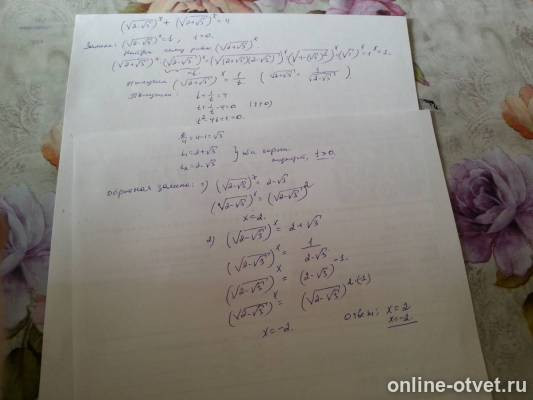 (√2-√3)^x + (√2+√3)^x = 4
Замена: (√2-√3)^x = t, t>0.
(√2+√3)^x · (√2-√3)^x = (√(2+√3)(2-√3))^x = 1^x = 1.
Получим (√2+√3)^x = 1/t (√2+√3 = 1/√2-√3)
t + 1/t = 4
t + 1/t - 4 = 0 (t>0)
t² - 4t + 1 = 0.
D/4 = 4-1 = √3
t₁ = 2+√3
t₂ = 2-√3 } два корня
t>0.
Обратная замена: 1) (√2-√3)^x = 2-√3
(√2-√3)^x = (√2-√3)^2
x=2.
2) (√2-√3)^x = 2+√3
(√2-√3)^x = 1/2-√3
(√2-√3)^x = (2-√3)^-1.
(√2-√3)^x = (√2-√3)^2·(-1)
x=-2.
Ответ: x=2
x=-2.
online-otvet.ru